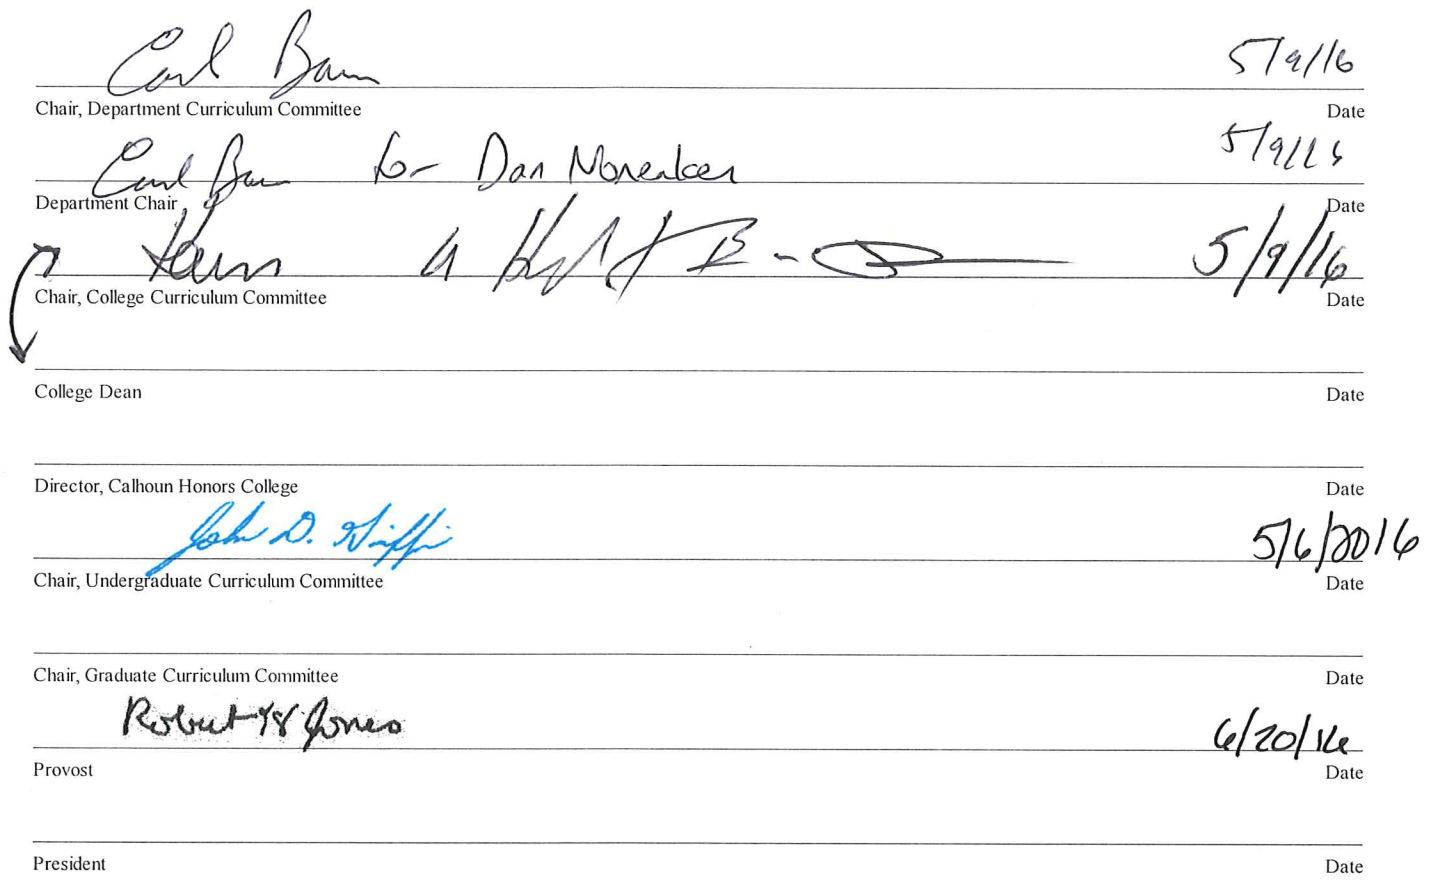 Carl Baum 5/9/16
Chair, Department Curriculum Committee Date
Carl Baum for Dan Noneaker 5/9/16
Department Chair Date
5/9/16
Chair, College Curriculum Committee Date
College Dean Date
Director, Calhoun Honors College Date
John D. Griffin 5/6/2016
Chair, Undergraduate Curriculum Committee Date
Chair, Graduate Curriculum Committee Date
Robert H Jones 6/20/16
Provost Date
President Date